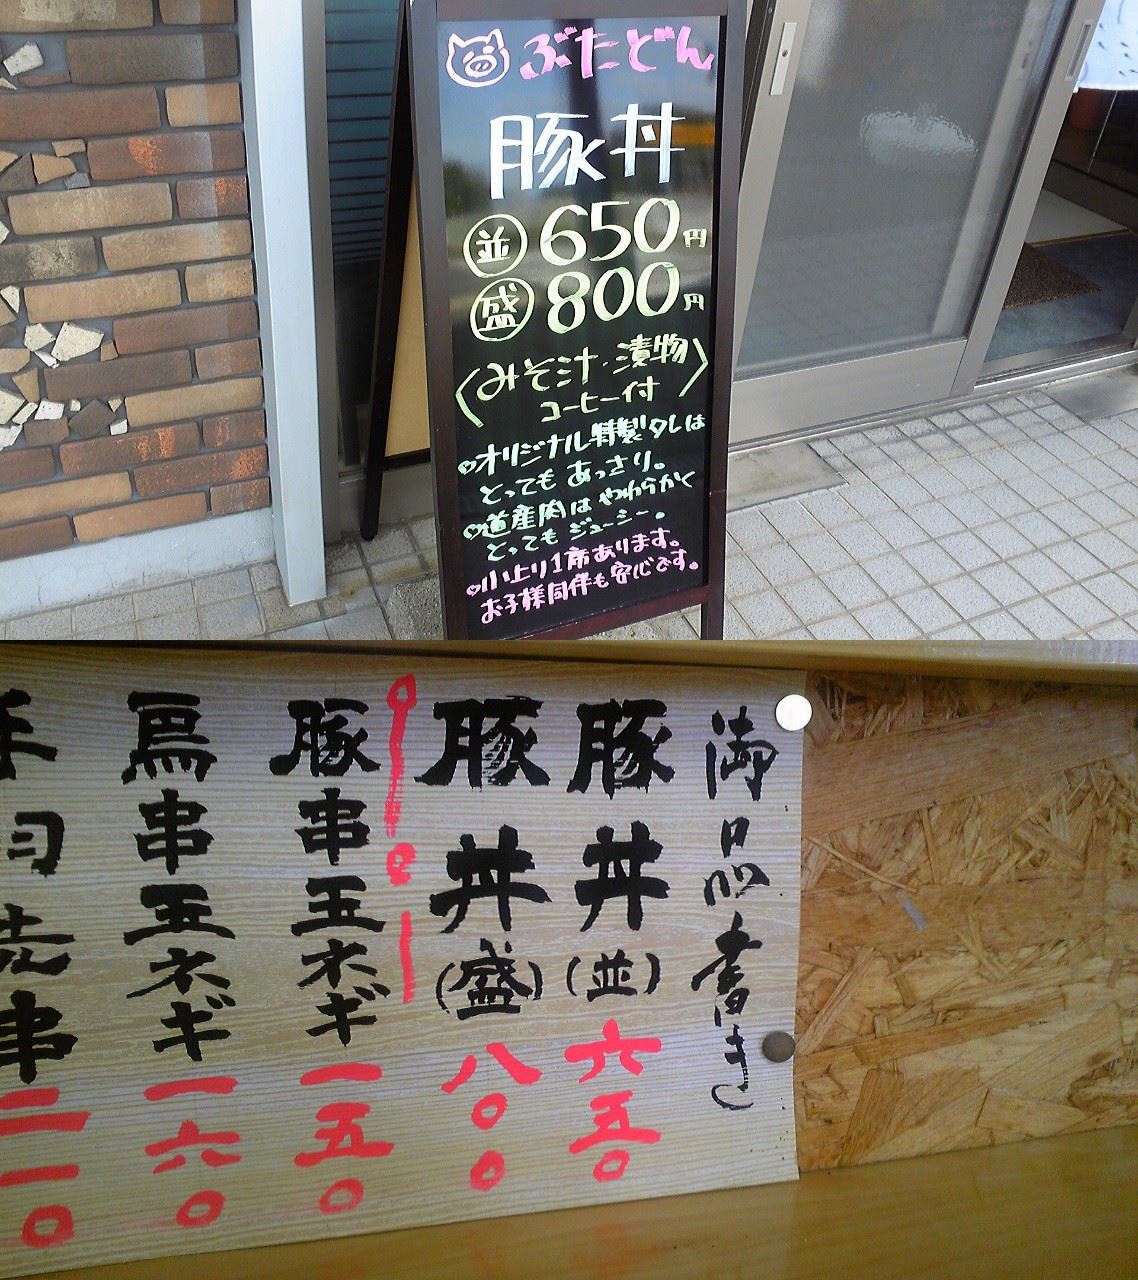 ぶたどん
豚丼
並 650円
盛 800円
〈みそ汁・漬物
コーヒー付〉
♡オリジナル特製タレは
とってもあっさり。
♡道産肉はやわらかく
とってもジューシー。
♡小上り1席あります。
お子様同伴も安心です。
御品書き
豚丼(並)六五〇
豚丼(盛)八〇〇
豚串玉ネギ一五〇
鳥串玉ネギ一六〇
手羽先串二一〇